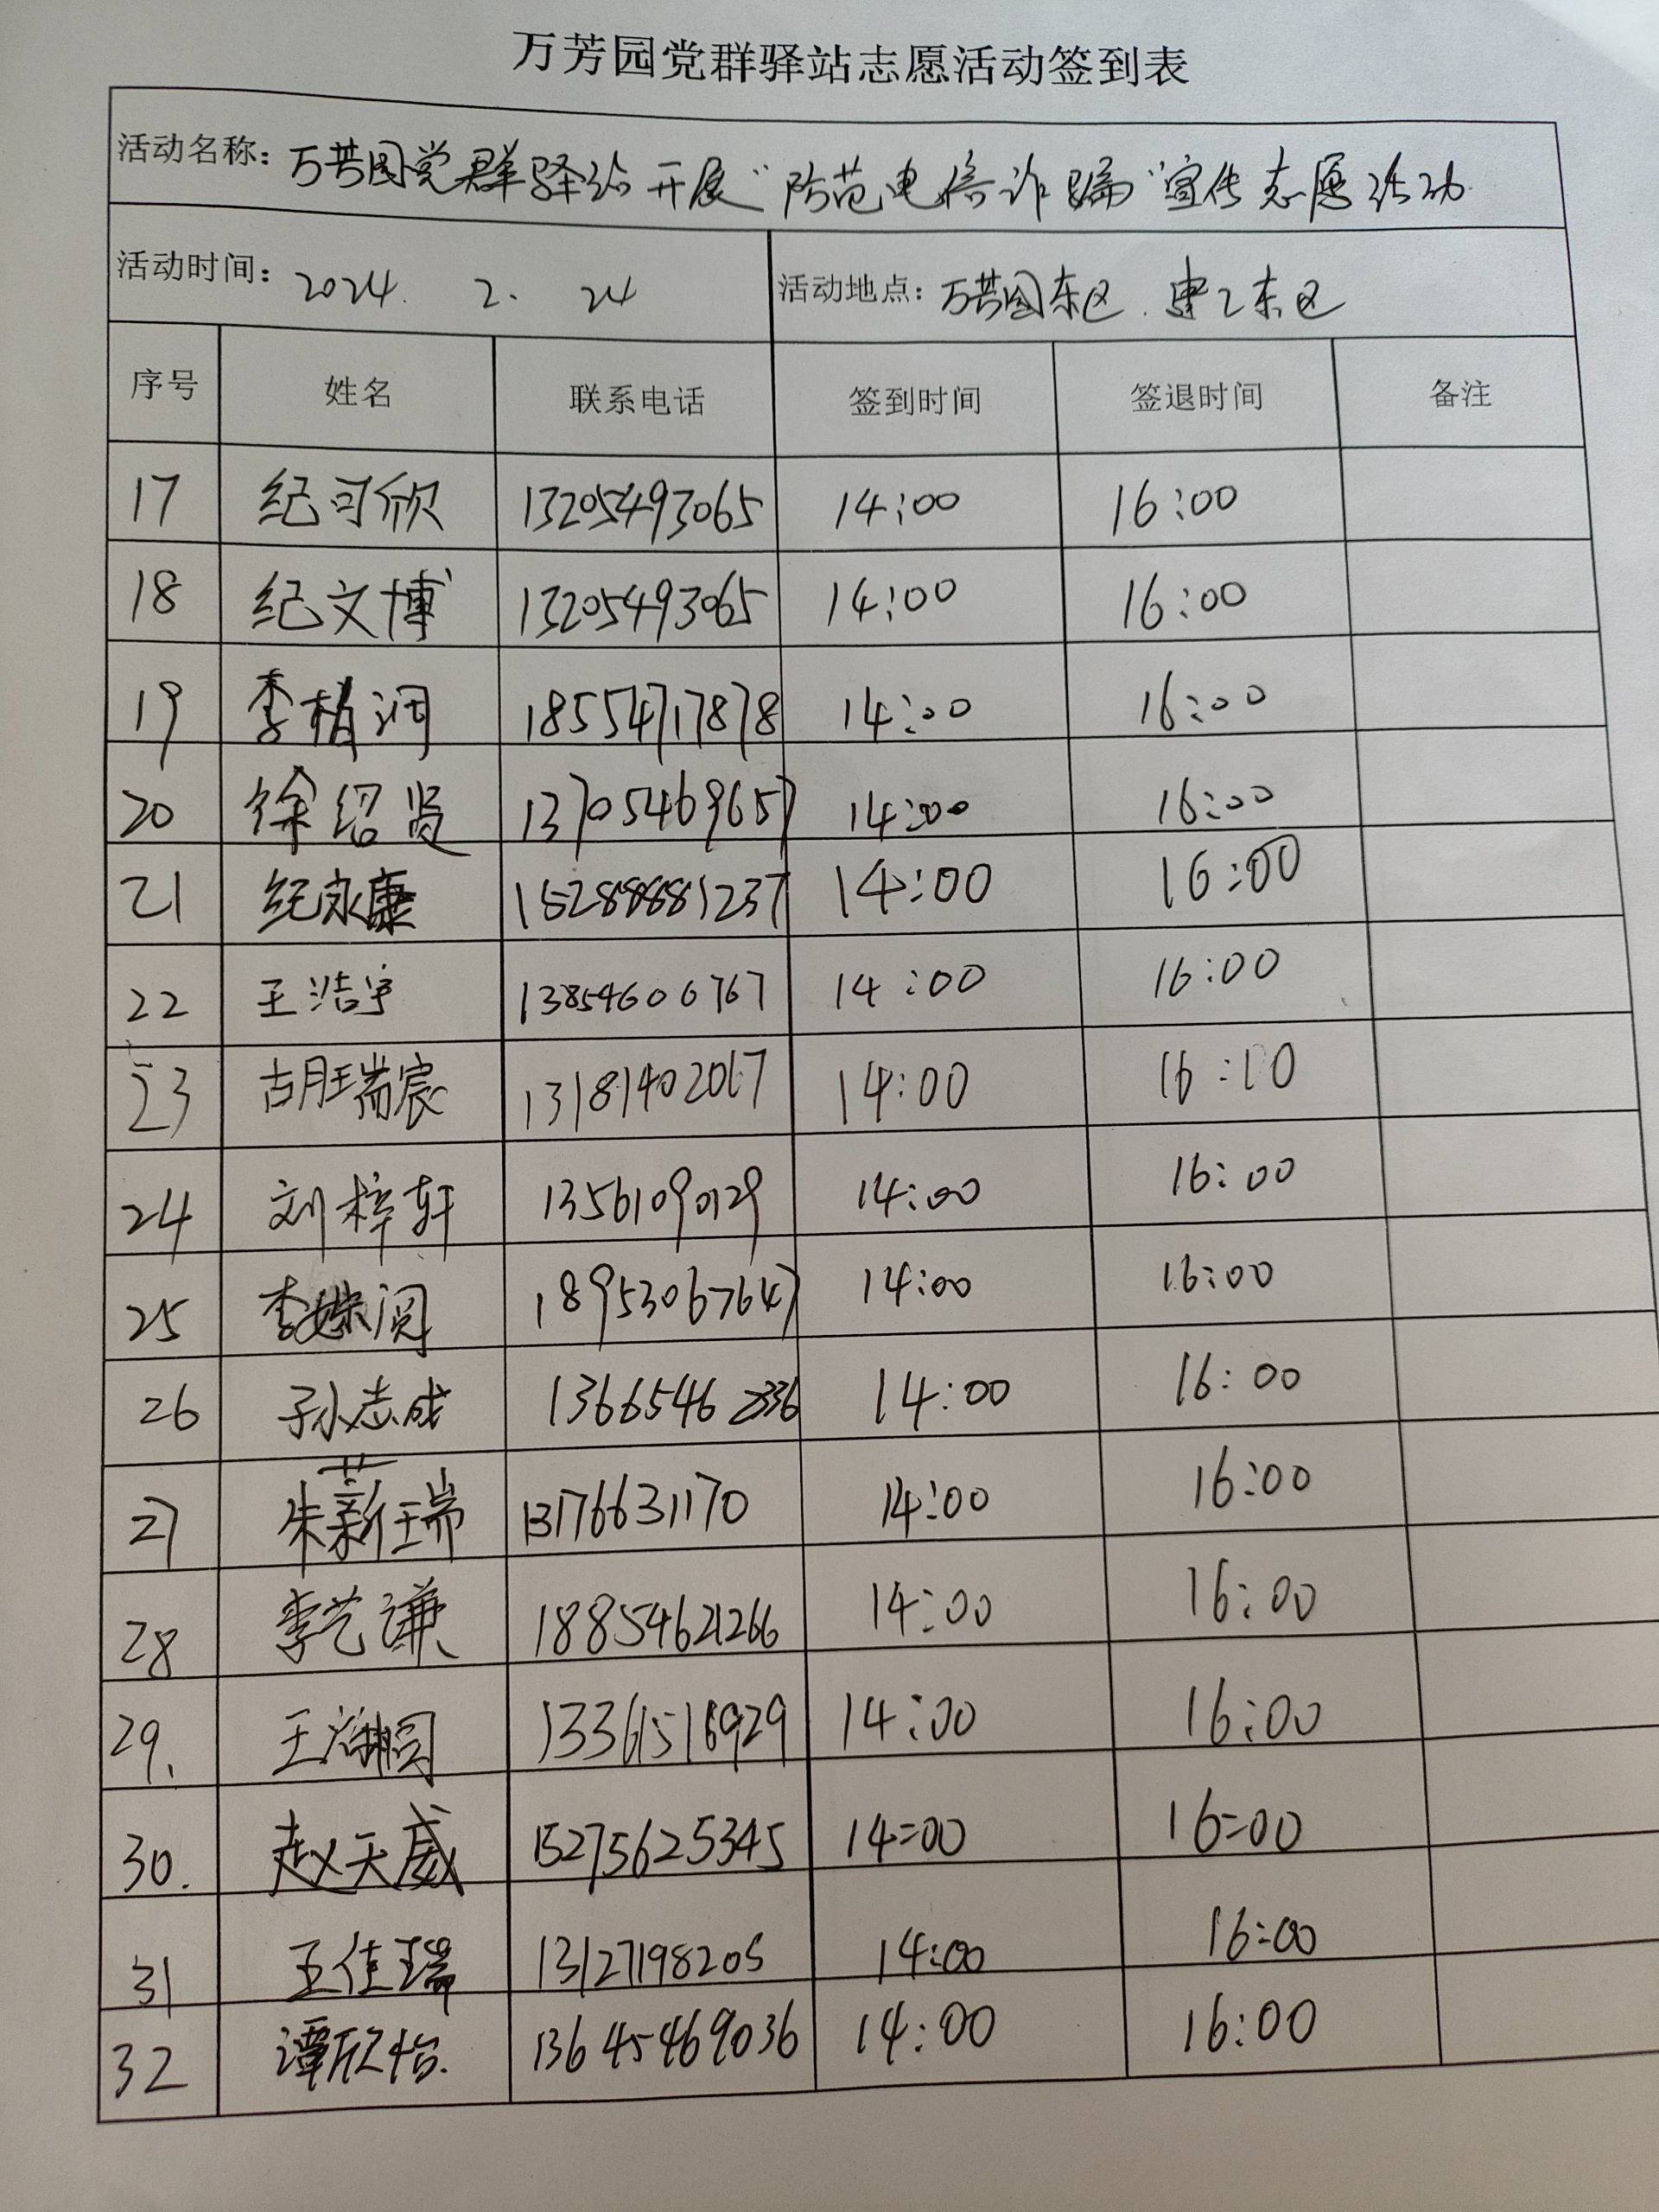 万芳园党群驿站志愿活动签到表
活动名称：万芳园党群驿站开展“防范电信诈骗”宣传志愿活动
活动时间：2024. 2. 24 活动地点：万芳园东区、建工东区
序号 姓名 联系电话 签到时间 签退时间 备注
17 纪可欣 13205493065 14:00 16:00
18 纪文博 13205493065 14:00 16:00
19 李楷润 18554717878 14:00 16:00
20 徐绍贤 13705469657 14:00 16:00
21 纪永康 14:00 16:00
22 王浩宇 13854606767 14:00 16:00
23 胡瑞宸 13181402067 14:00 16:00
24 刘梓轩 13561090129 14:00 16:00
25 李 18953067647 14:00 16:00
26 孙志成 13665462336 14:00 16:00
27 朱薪瑞 13176631170 14:00 16:00
28 李艺谦 18854621266 14:00 16:00
29. 王 13361516929 14:00 16:00
30. 赵天威 15275625345 14:00 16:00
31 王佳瑞 13127198205 14:00 16:00
32 谭欣怡 13645469036 14:00 16:00